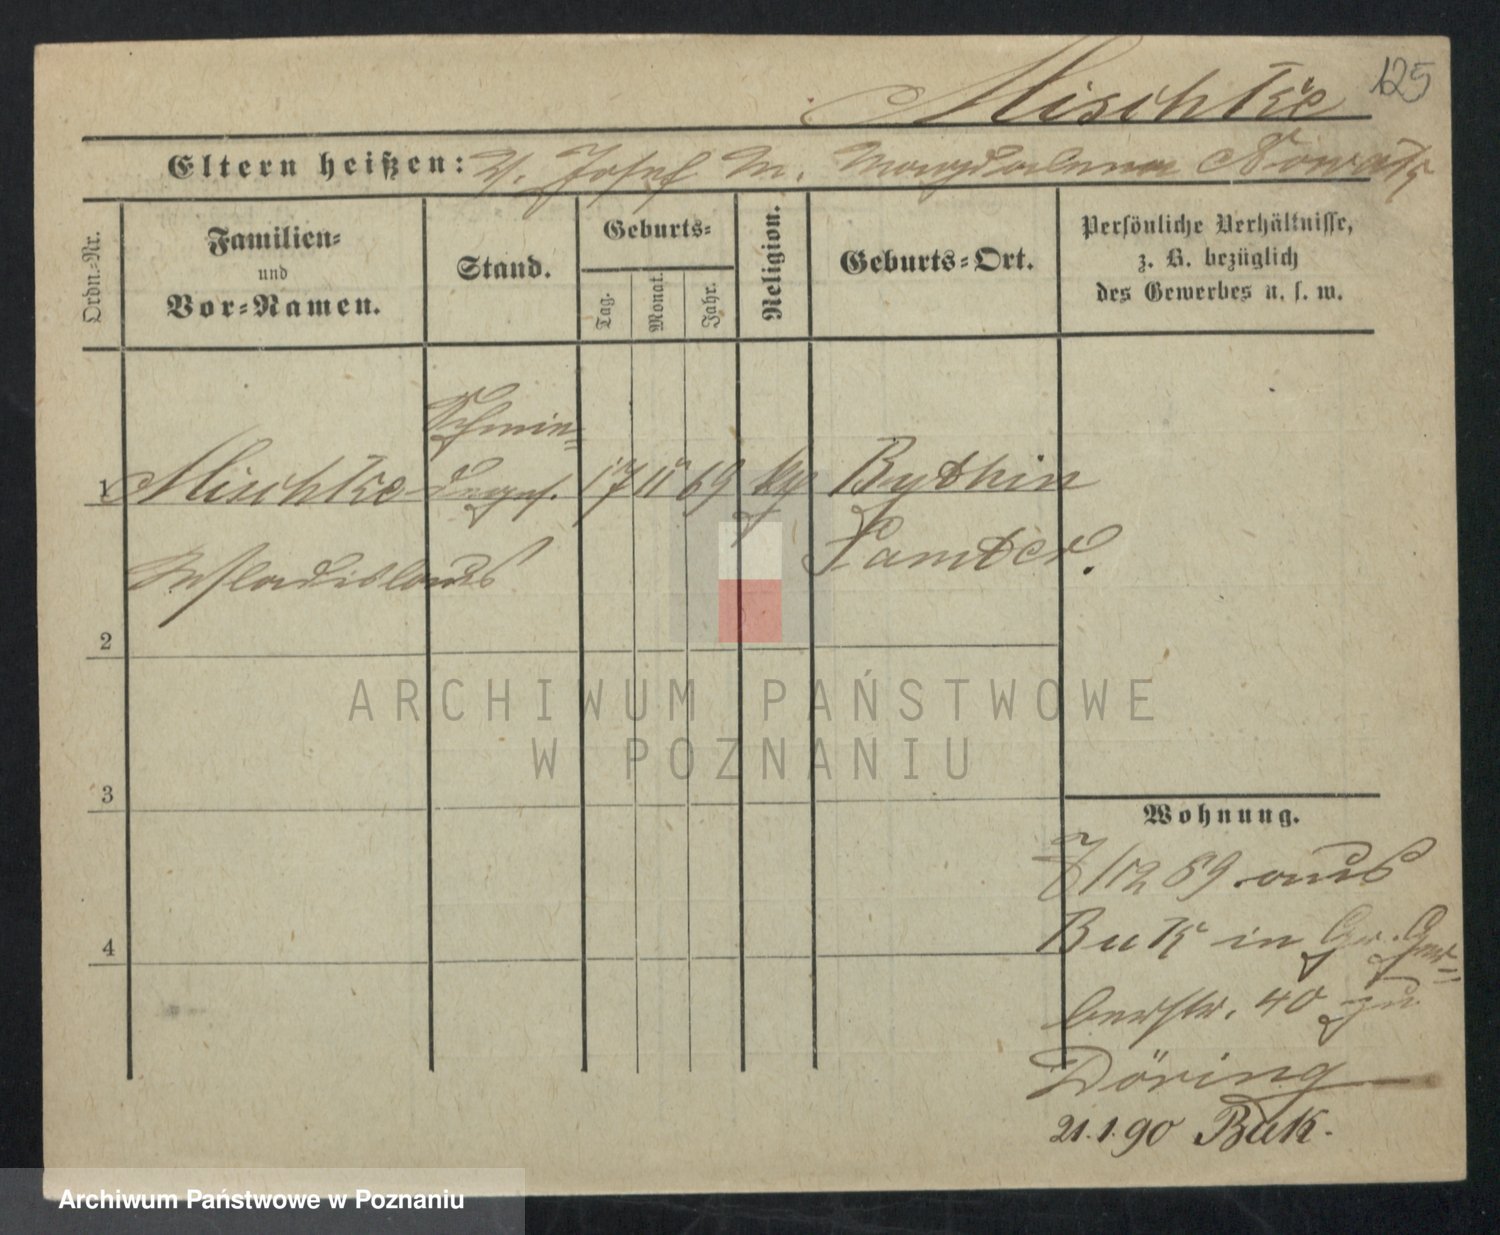 125
Mischke
Eltern heißen: V. Josef M. Magdalena Nowak
Ordn.-Nr.
Familien-
und
Vor-Namen.
Stand.
Geburts-
Tag.
Monat.
Jahr.
Religion.
Geburts-Ort.
Persönliche Verhältnisse,
z. B. bezüglich
des Gewerbes u. s. w.
Schmie-
1 Mischke degef. 17 11 69 kg Bythin
Wladislaus Samter.
2
3
4
Wohnung.
7/12 89 aus
Buk in Gr. Ger-
berstr. 40 zu
Döring
21.1.90 Buk.
ARCHIWUM PAŃSTWOWE
W POZNANIU
Archiwum Państwowe w Poznaniu